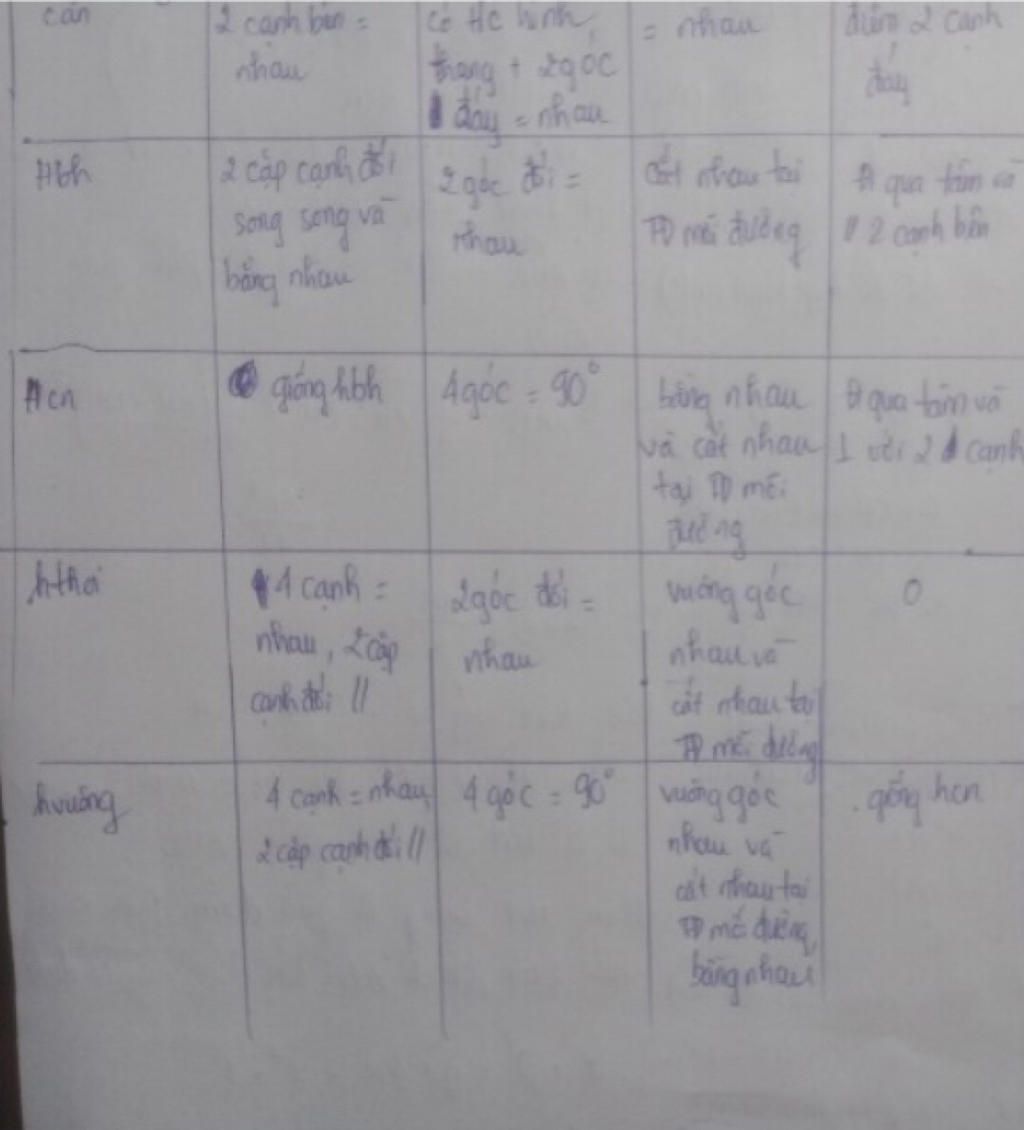 cân
2 cạnh bên =
nhau
có tc hình
thang + 2 góc
đáy = nhau
= nhau
điểm 2 cạnh
đáy
Hbh
2 cặp cạnh đối
song song và
bằng nhau
2 góc đối =
nhau
cắt nhau tại
TĐ mỗi đường
qua tâm và
2 cạnh bên
Hcn
giống hbh
4 góc = 90°
bằng nhau
và cắt nhau
tại TĐ mỗi
đường
qua tâm và
với 2 cạnh
hthoi
4 cạnh =
nhau, 2 cặp
cạnh đối //
2 góc đối =
nhau
vuông góc
nhau và
cắt nhau tại
TĐ mỗi đường
0
hvuông
4 cạnh = nhau,
2 cặp cạnh đối //
4 góc = 90°
vuông góc
nhau và
cắt nhau tại
TĐ mỗi đường,
bằng nhau
giống hcn